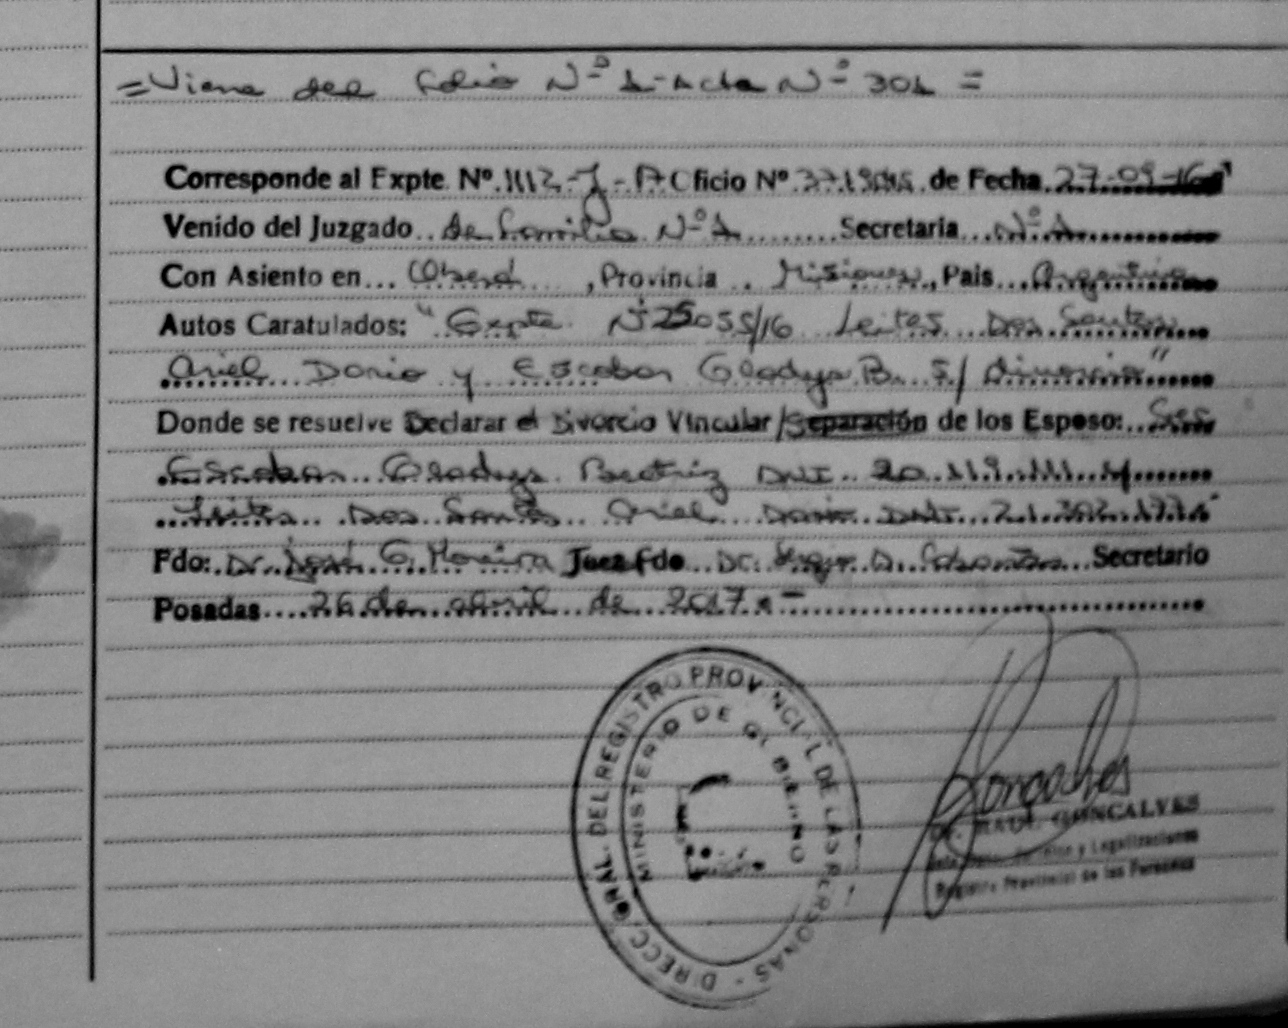 = Viene del folio Nº 1 - Acta Nº 301 =
Corresponde al Expte. Nº 1112-J-A Oficio Nº de Fecha 27-09-16
Venido del Juzgado de Familia Nº 1 Secretaria Nº 1
Con Asiento en Oberá, Provincia Misiones, Pais Argentina
Autos Caratulados: "Expte. Nº 25055/16 Leites Dos Santos
Ariel Dario y Escobar Gladys B. S/ divorcio"
Donde se resuelve Declarar el Divorcio Vincular/Separación de los Esposo: Sres
Escobar Gladys Beatriz DNI 20.119.111 y
Leites Dos Santos Ariel Dario DNI 21.302.177
Fdo: Dr. José G. Moreira Juez Fdo Dr. Sergio A. Secretario
Posadas 26 de abril de 2017.-
DIRECC. GRAL. DEL REGISTRO PROVINCIAL DE LAS PERSONAS -
MINISTERIO DE GOBIERNO
Goncalves
GONCALVES
y Legalizaciones
Registro Provincial de las Personas